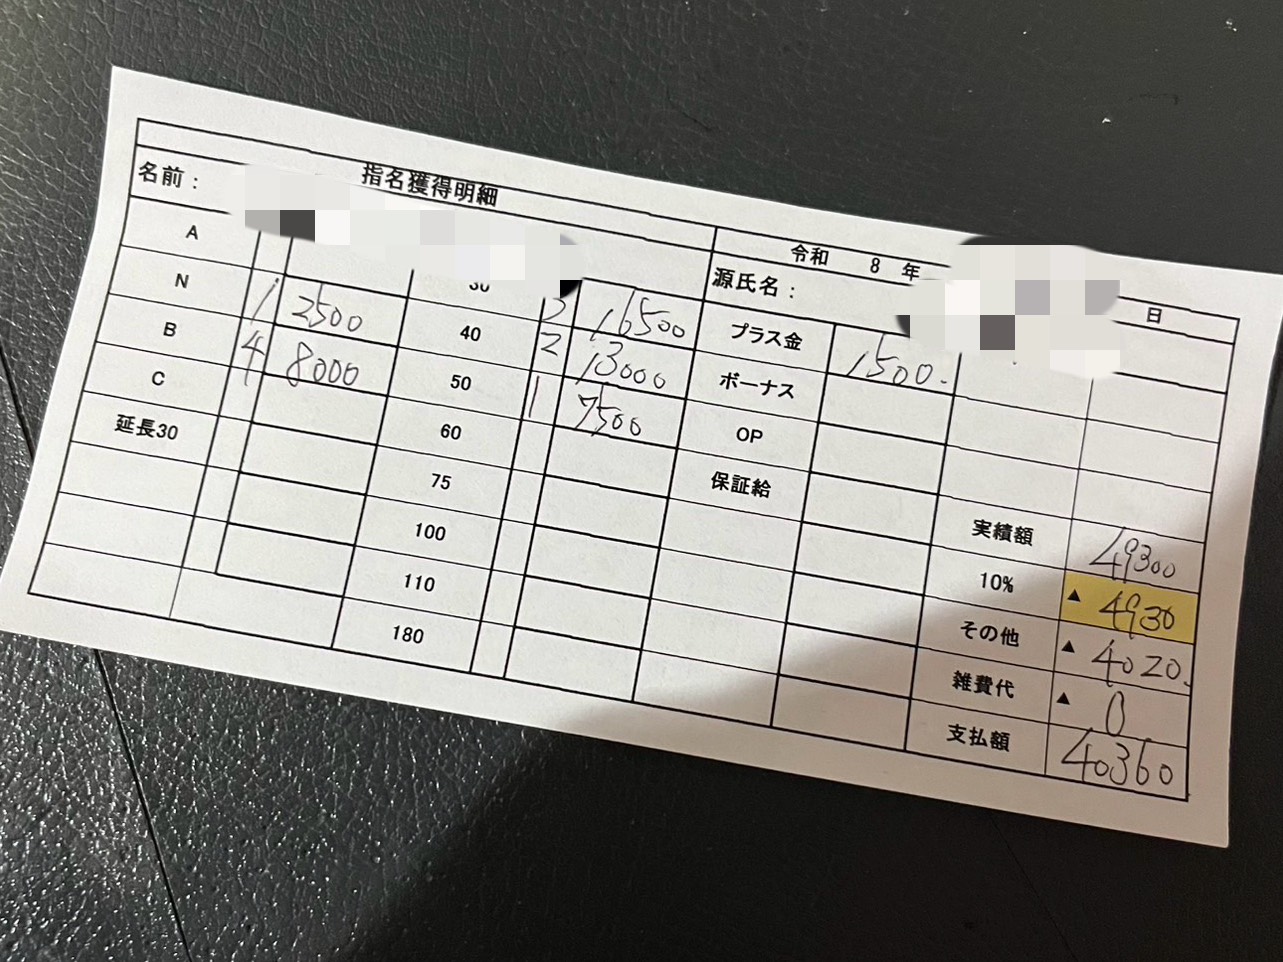 指名獲得明細
令和 8 年 日
名前：
源氏名：
A
N 1 2500
B 4 8000
C
延長30
30 16500
40 2 13000
50 1 7500
60
75
100
110
180
プラス金 1500.
ボーナス
OP
保証給
実績額 49300
10% ▲ 4930
その他 ▲ 4020.
雑費代 ▲ 0
支払額 40360